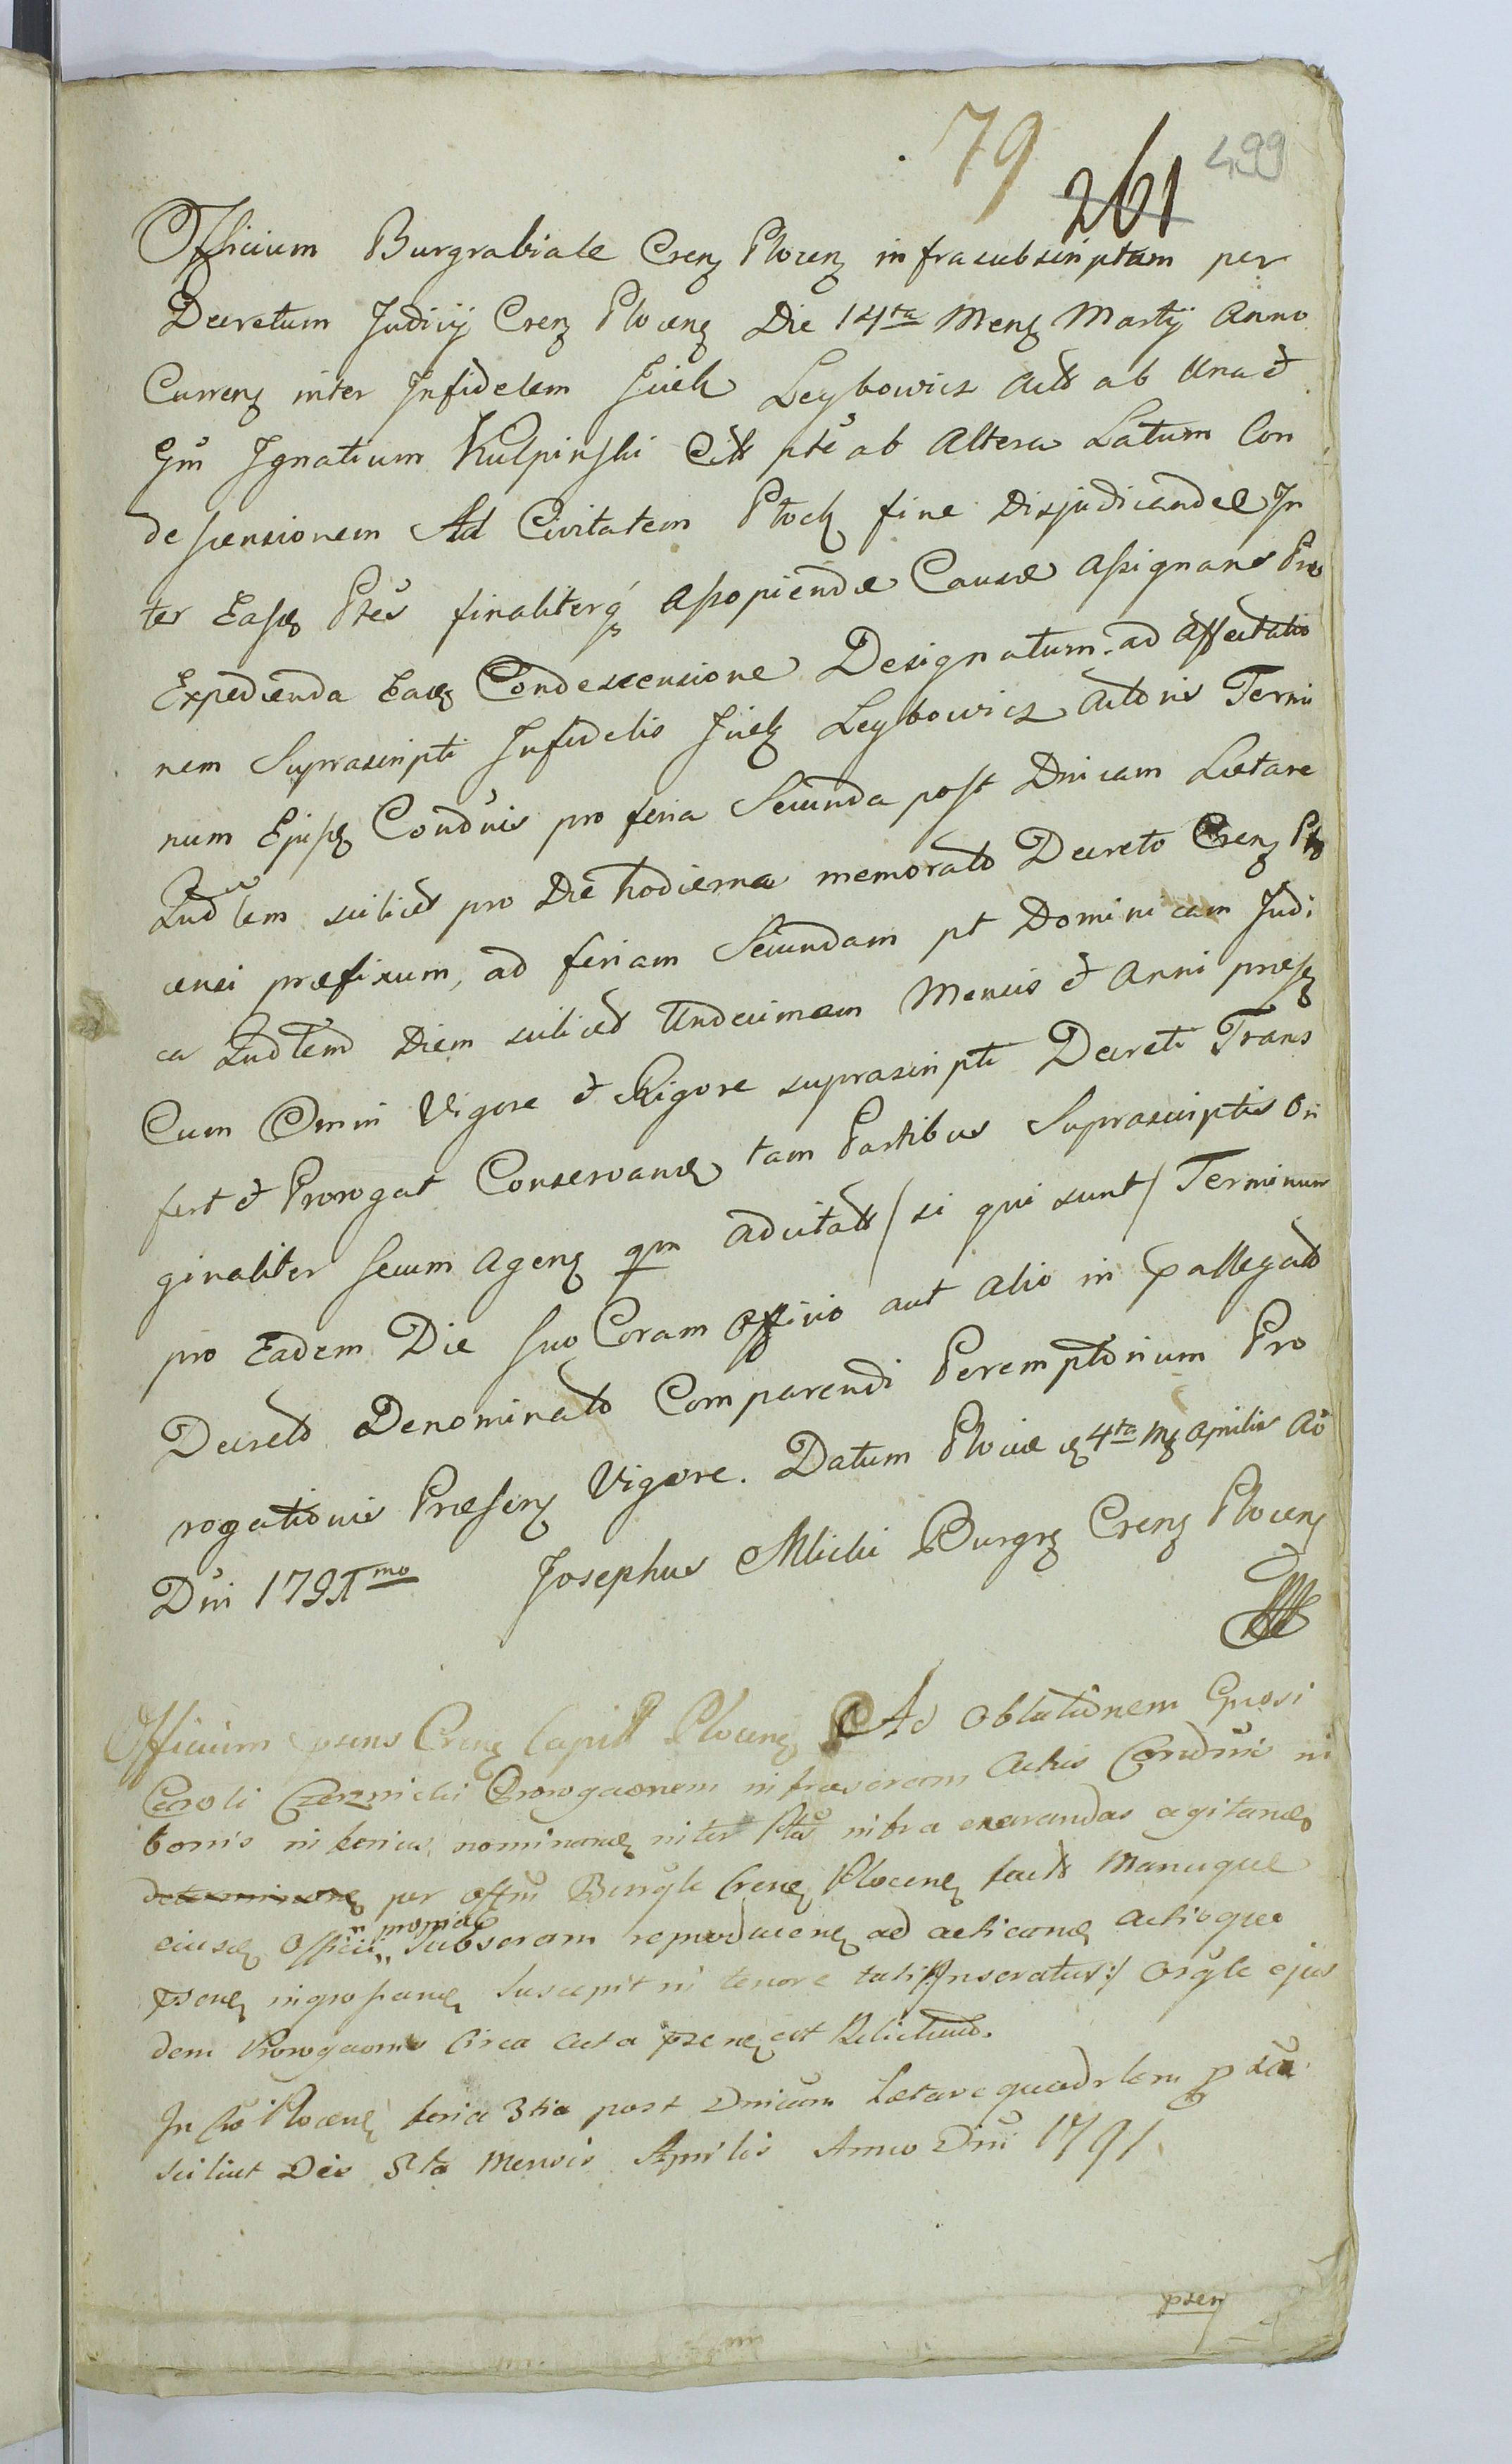 79 261 499
Officium Burgrabiale Crenz Plocenz infrasubscriptum per
Decretum Judicij Crenz Plocenz Die 14ta Menz Martij Anno
Currenz inter Infidelem Juek Leybowicz Actt ab Una et
Gm̄ Ignatium Kulpinski Citt ptē ab Altera Latum Con
descensionem Ad Civitatem Płock fine Disjudicandæ In
ter Easq Ptes finaliterq Assopiendæ Causæ Assignans Pro
Expedienda Eaq Condescensione Designatum ad Affectatio
nem Suprascripti Infidelis Juek Leybowicz Actoris Termi
num Ejusq Condnis pro feria Secunda post Dnicam Lætare
Qudlem scilicet pro Die hodierna memorato Decreto Crenz Plo
censi præfixum, ad feriam Secundam pt Dominicam Judi
ca Qudlem Diem scilicet Undecimam Mensis et Anni præsz
Cum Omni Vigore et Rigore suprascripti Decreti Trans
fert et Prorogat Conservanz tam Partibus Suprascriptis Ori
ginaliter secum Agenz qm adcitatt / si qui sunt / Terminum
pro Eadem Die suo Coram Officio aut Alio in pallegato
Decreto Denominato Comparendi Peremptorium Pro
rogationis Præsenz Vigore. Datum Plociæ 4ta Mz Aprilis Aō
Dni 1791mo Josephus Mlicki Burgrz Crenz Plocenz
Officium psens Crenz Capitt Plocenz Ad Oblationem Gnosi
Caroli Czerznicki Prorogaonem infrascram Actus Condnis in
bonis inferius nominanz inter Ptes infra exarandas agitanz
per offm Burgle Crenz Plocenz factt Manuque
eiusq Officii propria Subscram reproducenz ad acticanz Actisque
psenz ingrossanz Suscepit in tenore tali /:Inseratur:/ Orgle ejus
dem Prorogaonis Circa Acta psenz est Relictum.
In Cro Plocenz feria 3tia post Dnicam Lætare quadrlem pxa
scilicet Die 5ta Mensis Aprilis Anno Dni 1791
psen